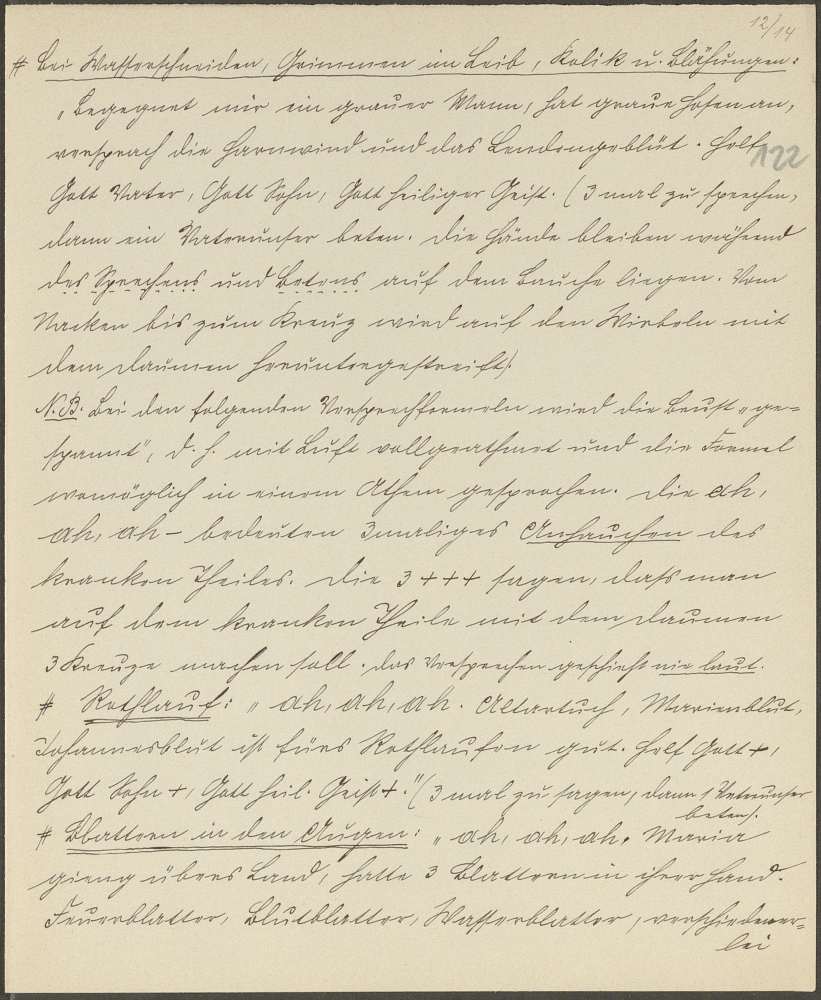 12/14
# Bei Wasserschneiden, Grimmen im Leib, Kolik u. Blähungen:
„Begegnet mir ein grauer Mann, hat graue Hosen an,
versprach die Harnwind und das Lendengeblüt. Helf
122
Gott Vater, Gott Sohn, Gott heiliger Geist. (3 mal zu sprechen,
dann ein Vaterunser beten. Die Hände bleiben während
des Sprechens und Betens auf dem Bauche liegen. Vom
Nacken bis zum Kreuz wird auf den Wirbeln mit
dem Daumen heruntergestreift).
N.B. Bei den folgenden Versprechformeln wird die Brust „ge=
spannt", d. h. mit Luft vollgeathmet und die Formel
womöglich in einem Athem gesprochen. Die ah,
ah, ah – bedeuten 3maliges Anhauchen des
kranken Theiles. Die 3 +++ sagen, dass man
auf dem kranken Theile mit dem Daumen
3 Kreuze machen soll. Das Versprechen geschieht nie laut.
# Rothlauf: „ah, ah, ah. Altartuch, Marienblut,
Johannesblut ist fürs Rothlaufen gut. Helf Gott +,
Gott Sohn +, Gott heil. Geist +." (3 mal zu sagen, dann 1 Vaterunser
beten).
# Blattern in den Augen: „ah, ah, ah. Maria
gieng übers Land, hatte 3 Blattern in ihrer Hand.
Feuerblatter, Blutblatter, Wasserblatter, verschiedener=
lei